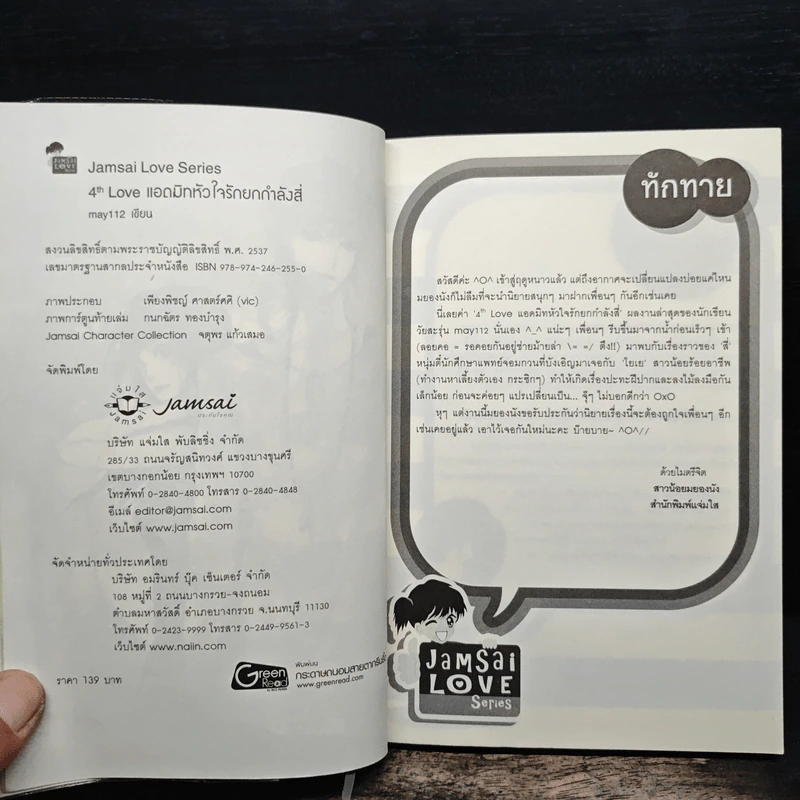 JAMSAI
LOVE
Jamsai Love Series
4th Love แอดมิทหัวใจรักยกกำลังสี่
may112 เขียน
สงวนลิขสิทธิ์ตามพระราชบัญญัติลิขสิทธิ์ พ.ศ. 2537
เลขมาตรฐานสากลประจำหนังสือ ISBN 978-974-246-255-0
ภาพประกอบ เพียงพิชญ์ ศาสตร์ศศิ (vic)
ภาพการ์ตูนท้ายเล่ม กนกฉัตร ทองบำรุง
Jamsai Character Collection จตุพร แก้วเสมอ
จัดพิมพ์โดย
แจ่มใส
Jamsai
Jamsai
ประทับใจคุณ
บริษัท แจ่มใส พับลิชชิ่ง จำกัด
285/33 ถนนจรัญสนิทวงศ์ แขวงบางขุนศรี
เขตบางกอกน้อย กรุงเทพฯ 10700
โทรศัพท์ 0-2840-4800 โทรสาร 0-2840-4848
อีเมล์ editor@jamsai.com
เว็บไซต์ www.jamsai.com
จัดจำหน่ายทั่วประเทศโดย
บริษัท อมรินทร์ บุ๊ค เซ็นเตอร์ จำกัด
108 หมู่ที่ 2 ถนนบางกรวย-จงถนอม
ตำบลมหาสวัสดิ์ อำเภอบางกรวย จ.นนทบุรี 11130
โทรศัพท์ 0-2423-9999 โทรสาร 0-2449-9561-3
เว็บไซต์ www.naiin.com
ราคา 139 บาท
Green
Read
พิมพ์บน
กระดาษถนอมสายตากรีนรี้ด
www.greenread.com
ทักทาย
สวัสดีค่ะ ^O^ เข้าสู่ฤดูหนาวแล้ว แต่ถึงอากาศจะเปลี่ยนแปลงบ่อยแค่ไหน
มยองนังก็ไม่ลืมที่จะนำนิยายสนุกๆ มาฝากเพื่อนๆ กันอีกเช่นเคย
นี่เลยค่า '4th Love แอดมิทหัวใจรักยกกำลังสี่' ผลงานล่าสุดของนักเขียน
วัยสะรุ่น may112 นั่นเอง ^_^ แน่ะๆ เพื่อนๆ รีบขึ้นมาจากน้ำก่อนเร็วๆ เข้า
(ลอยคอ = รอคอยกันอยู่ช่ายม้ายล่า \= =/ ตึง!!) มาพบกับเรื่องราวของ 'สี่'
หนุ่มตี๋นักศึกษาแพทย์จอมกวนที่บังเอิญมาเจอกับ 'ใยเย' สาวน้อยร้อยอาชีพ
(ทำงานหาเลี้ยงตัวเอง กระซิกๆ) ทำให้เกิดเรื่องปะทะฝีปากและลงไม้ลงมือกัน
เล็กน้อย ก่อนจะค่อยๆ แปรเปลี่ยนเป็น... จุ๊ๆ ไม่บอกดีกว่า OxO
หุๆ แต่งานนี้มยองนังขอรับประกันว่านิยายเรื่องนี้จะต้องถูกใจเพื่อนๆ อีก
เช่นเคยอยู่แล้ว เอาไว้เจอกันใหม่นะคะ บ๊ายบาย~ ^O^//
ด้วยไมตรีจิต
สาวน้อยมยองนัง
สำนักพิมพ์แจ่มใส
JAMSAI
LOVE
Series